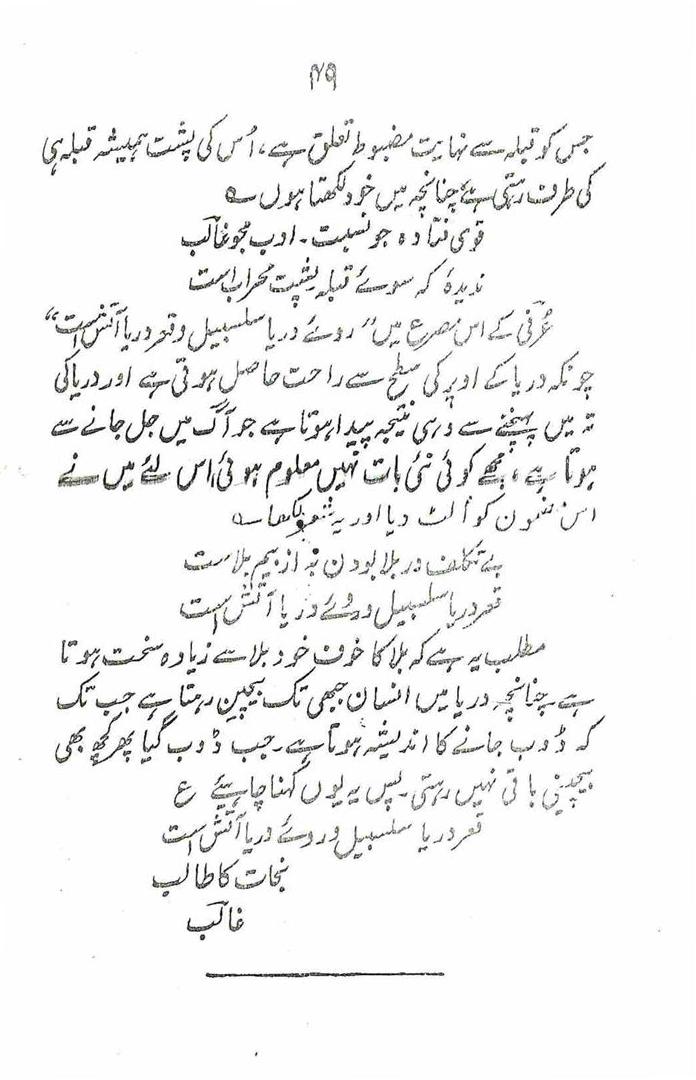 ۴۹
جس کو قبلہ سے نہایت مضبوط تعلق ہے، اُس کی پشت ہمیشہ قبلہ ہی
کی طرف رہتی ہے چنانچہ میں خود لکھتا ہوں ؎
قوی فتادہ جو نسبت ۔ ادب مجو غالب
ندیدۂ کہ سوئے قبلہ پشت محراب است
عُرفی کے اس مصرع میں "روئے دریا سلسبیل و قعر دریا آتش است"
چونکہ دریا کے اوپر کی سطح سے راحت حاصل ہوتی ہے اور دریا کی
تہ میں پہنچنے سے وہی نتیجہ پیدا ہوتا ہے جو آگ میں جل جانے سے
ہوتا ہے، مجھے کوئی نئی بات نہیں معلوم ہوئی اس لئے میں نے
اس مضمون کو اُلٹ دیا اور یہ شعر لکھا ؎
بے تکلف در بلا بودن بہ از بیم بلاست
قعر دریا سلسبیل و روئے دریا آتش است
مطلب یہ ہے کہ بلا کا خوف خود بلا سے زیادہ سخت ہوتا
ہے چنانچہ دریا میں انسان جبھی تک بیچین رہتا ہے جب تک
کہ ڈوب جانے کا اندیشہ ہوتا ہے ۔ جب ڈوب گیا پھر کچھ بھی
بیچینی باقی نہیں رہتی ۔ پس یہ یوں کہنا چاہیئے ع
قعر دریا سلسبیل و روئے دریا آتش است
نجات کا طالب
غالب